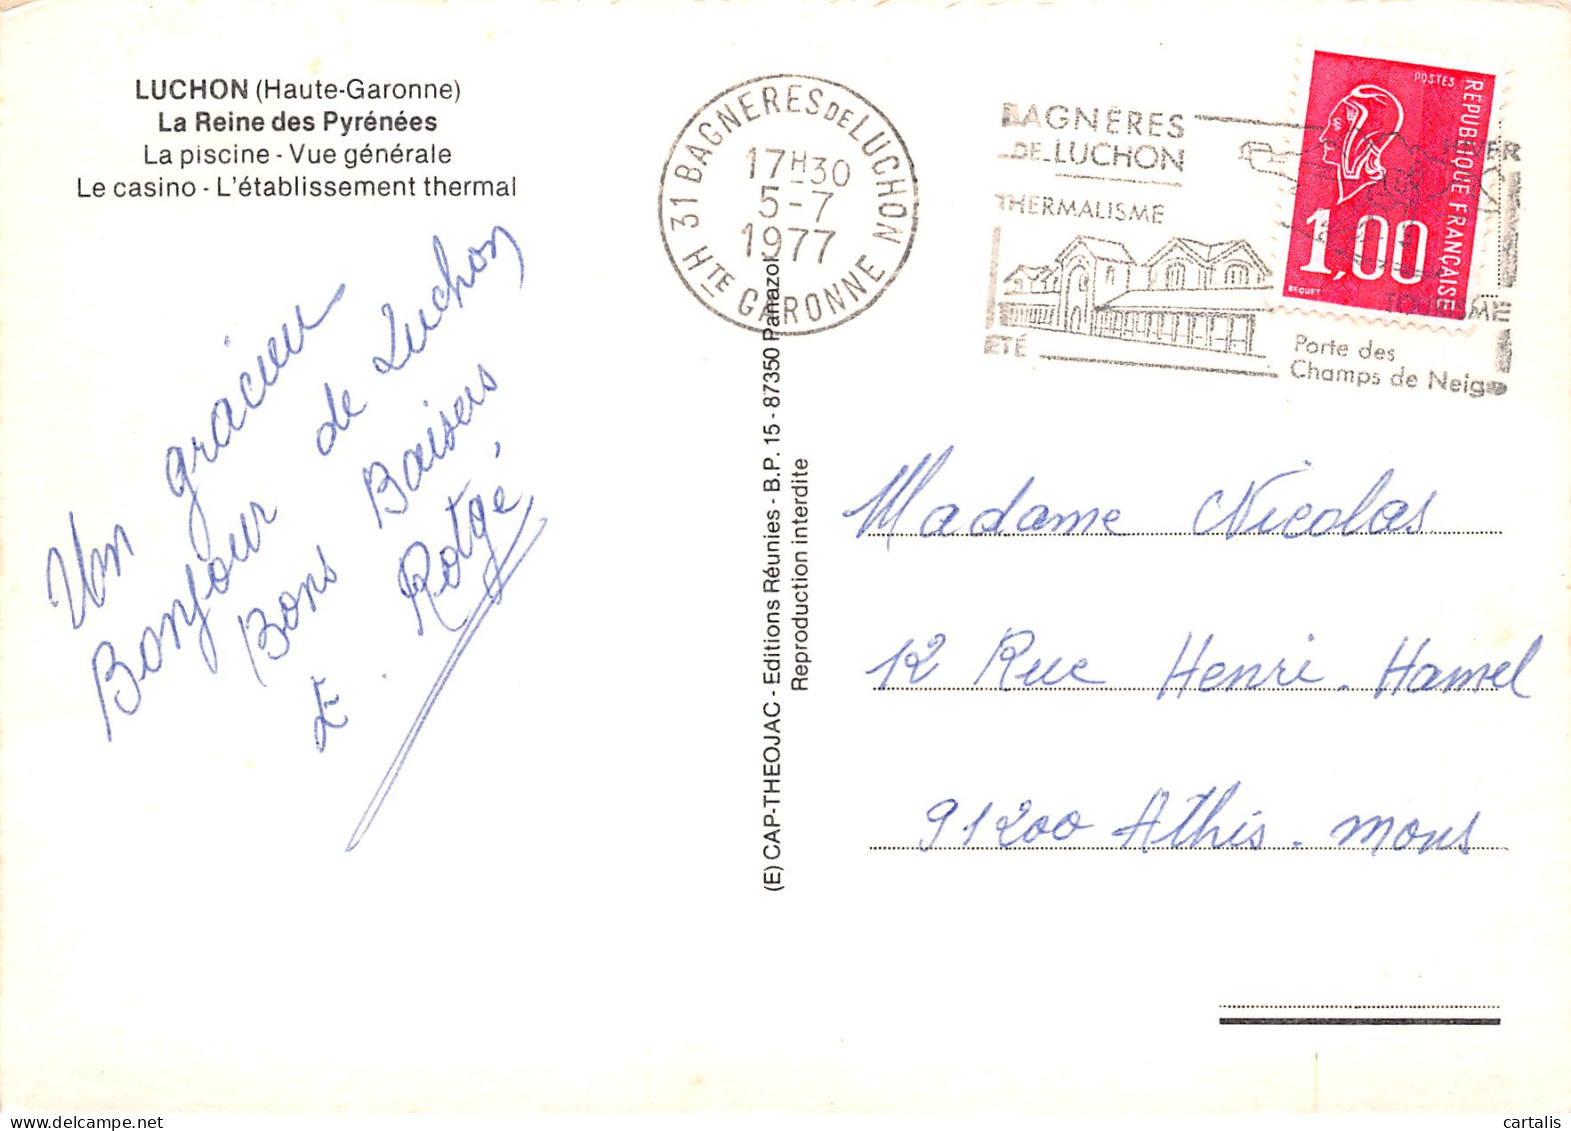 LUCHON (Haute-Garonne)
La Reine des Pyrénées
La piscine - Vue générale
Le casino - L'établissement thermal
Un gracieux
Bonjour de Luchon
Bons Baisers
Rotgé
31 BAGNERES DE LUCHON
17H30
5-7
1977
HTE GARONNE
BAGNÈRES
DE LUCHON
THERMALISME
ÉTÉ
HIVER
TOURISME
Porte des
Champs de Neige
POSTES
REPUBLIQUE FRANÇAISE
1,00
BEQUET
(E) CAP-THEOJAC - Editions Réunies - B.P. 15 - 87350 Panazol
Reproduction interdite
Madame Nicolas
12 Rue Henri-Hamel
91200 Athis-mons
www.delcampe.net
cartalis